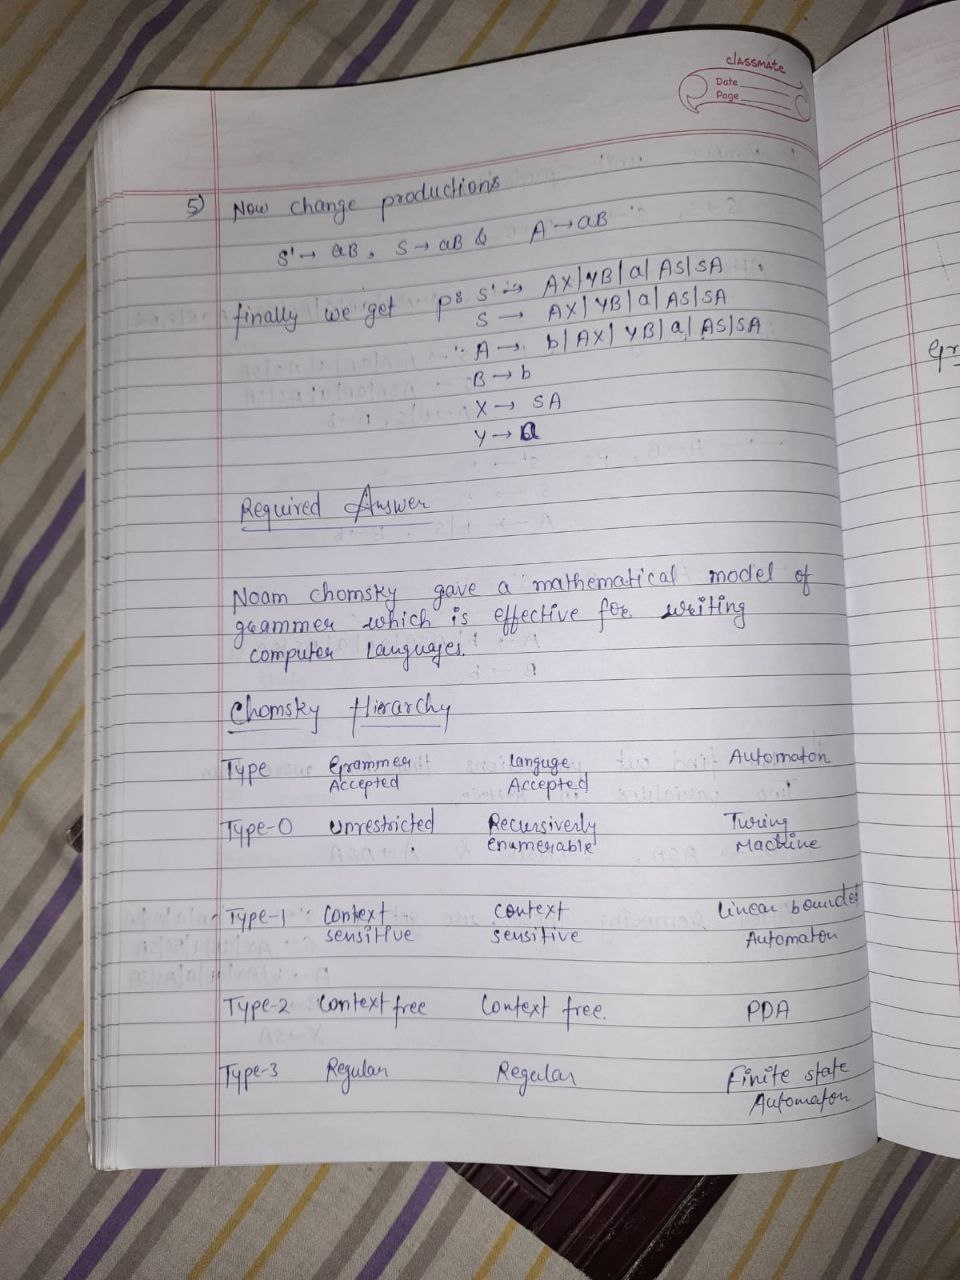 classmate
Date
Page
5) Now change productions
S' → aB, S → aB & A → aB
finally we get P: S' → AX|YB|a|AS|SA
S → AX|YB|a|AS|SA
A → b|AX|YB|a|AS|SA
B → b
X → SA
Y → a
Required Answer
Noam chomsky gave a mathematical model of
grammer which is effective for writing
computer languages.
Chomsky Hierarchy
Type Grammer Accepted languge Accepted Automaton
Type-0 unrestricted Recursiverly enumerable Turing Machine
Type-1 Context sensitive context sensitive Linear bounded Automaton
Type-2 Context free Context free. PDA
Type-3 Regular Regular Finite state Automaton